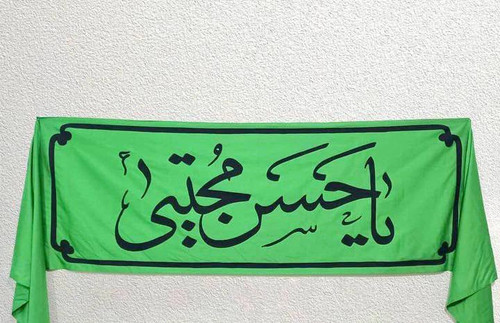 یا حسن مجتبی